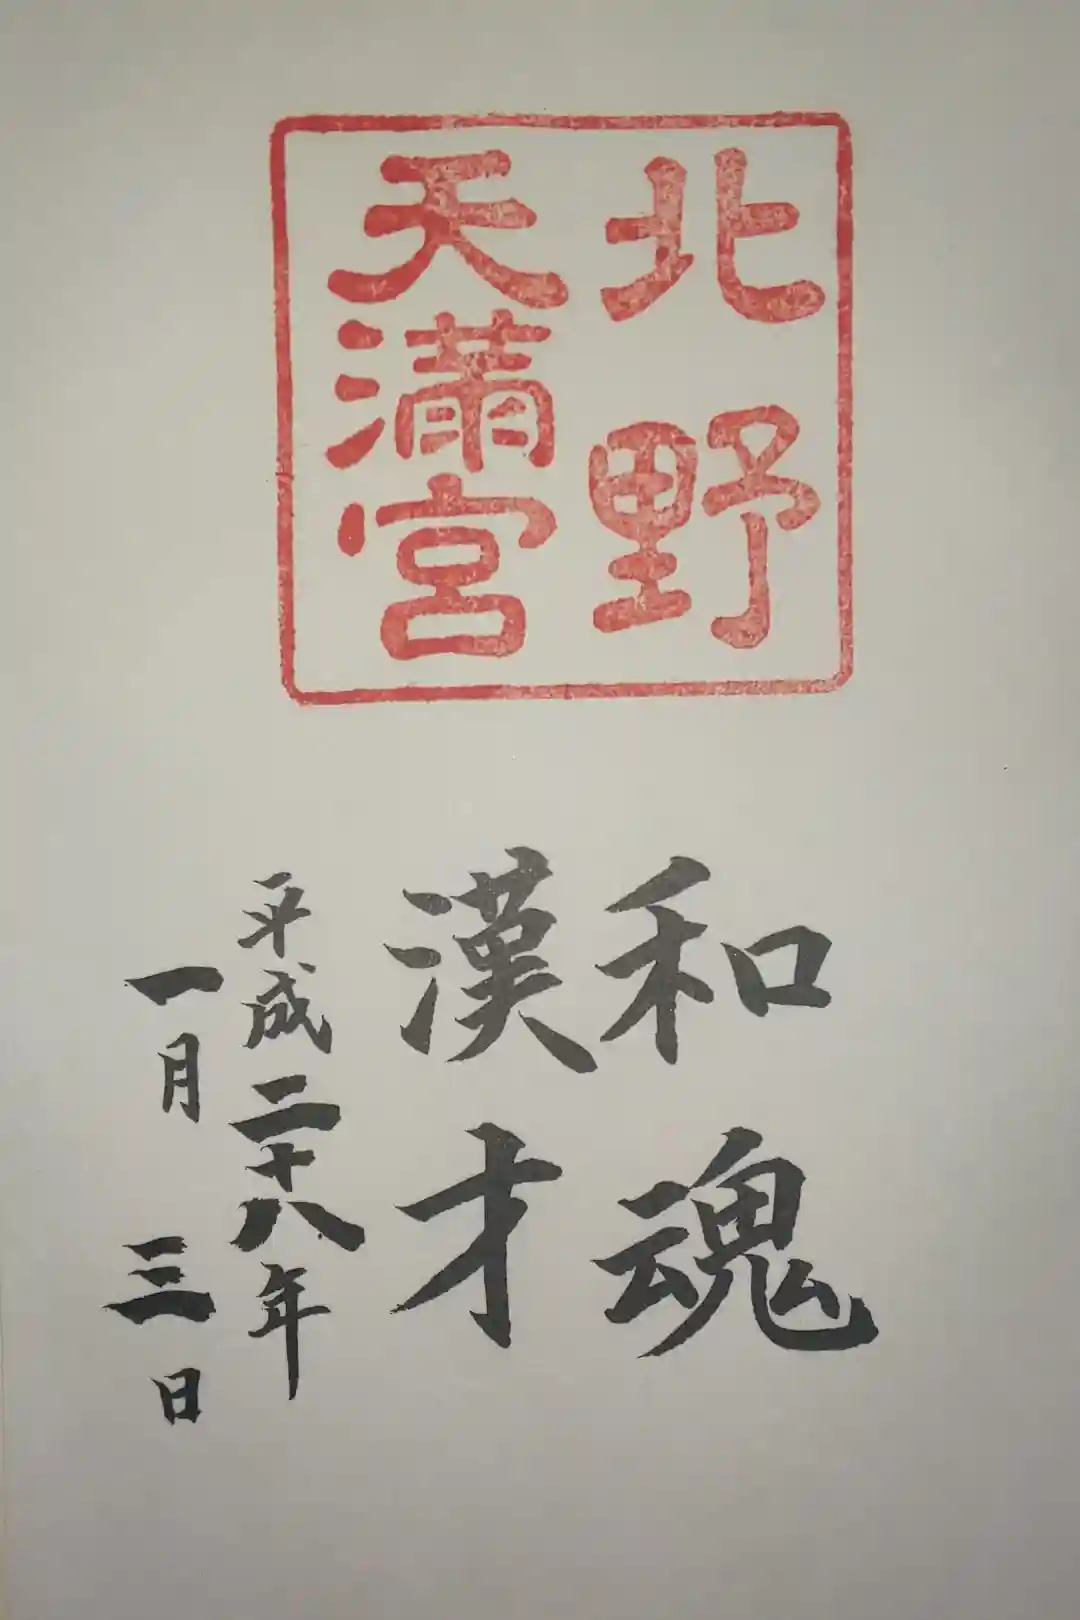 北野
天満宮
和魂
漢才
平成二十八年
一月三日